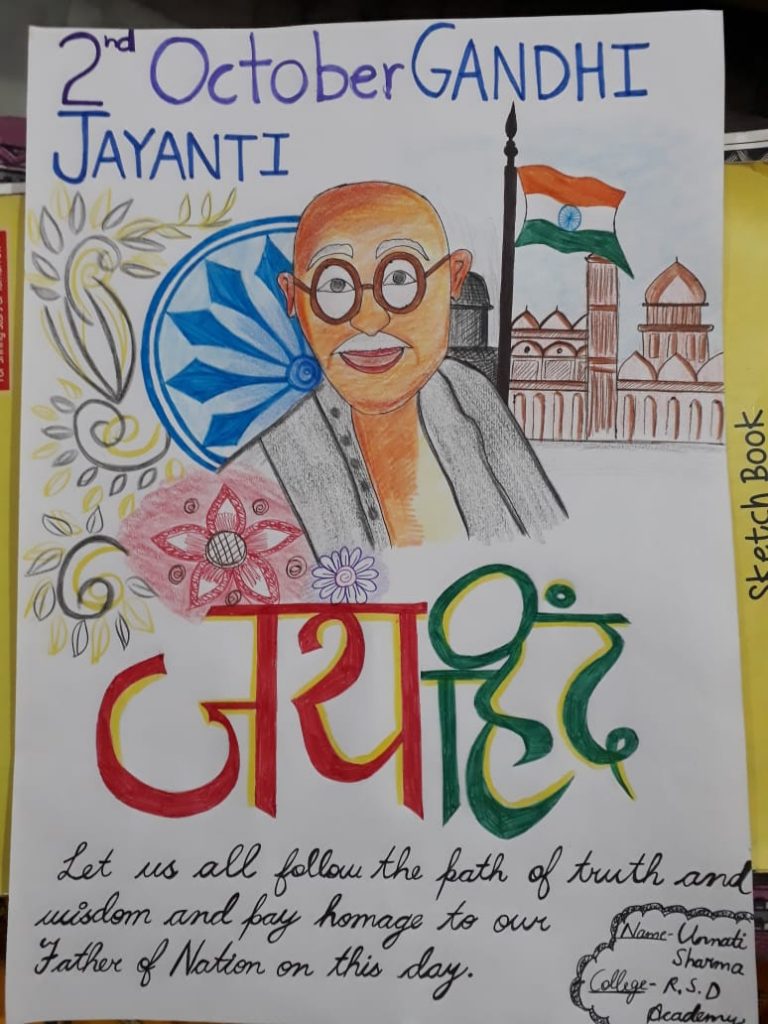 2nd October GANDHI
JAYANTI
Sketch Book
जय हिंद
Let us all follow the path of truth and
wisdom and pay homage to our
Father of Nation on this day.
Name- Unnati
Sharma
College- R.S.D
Academy